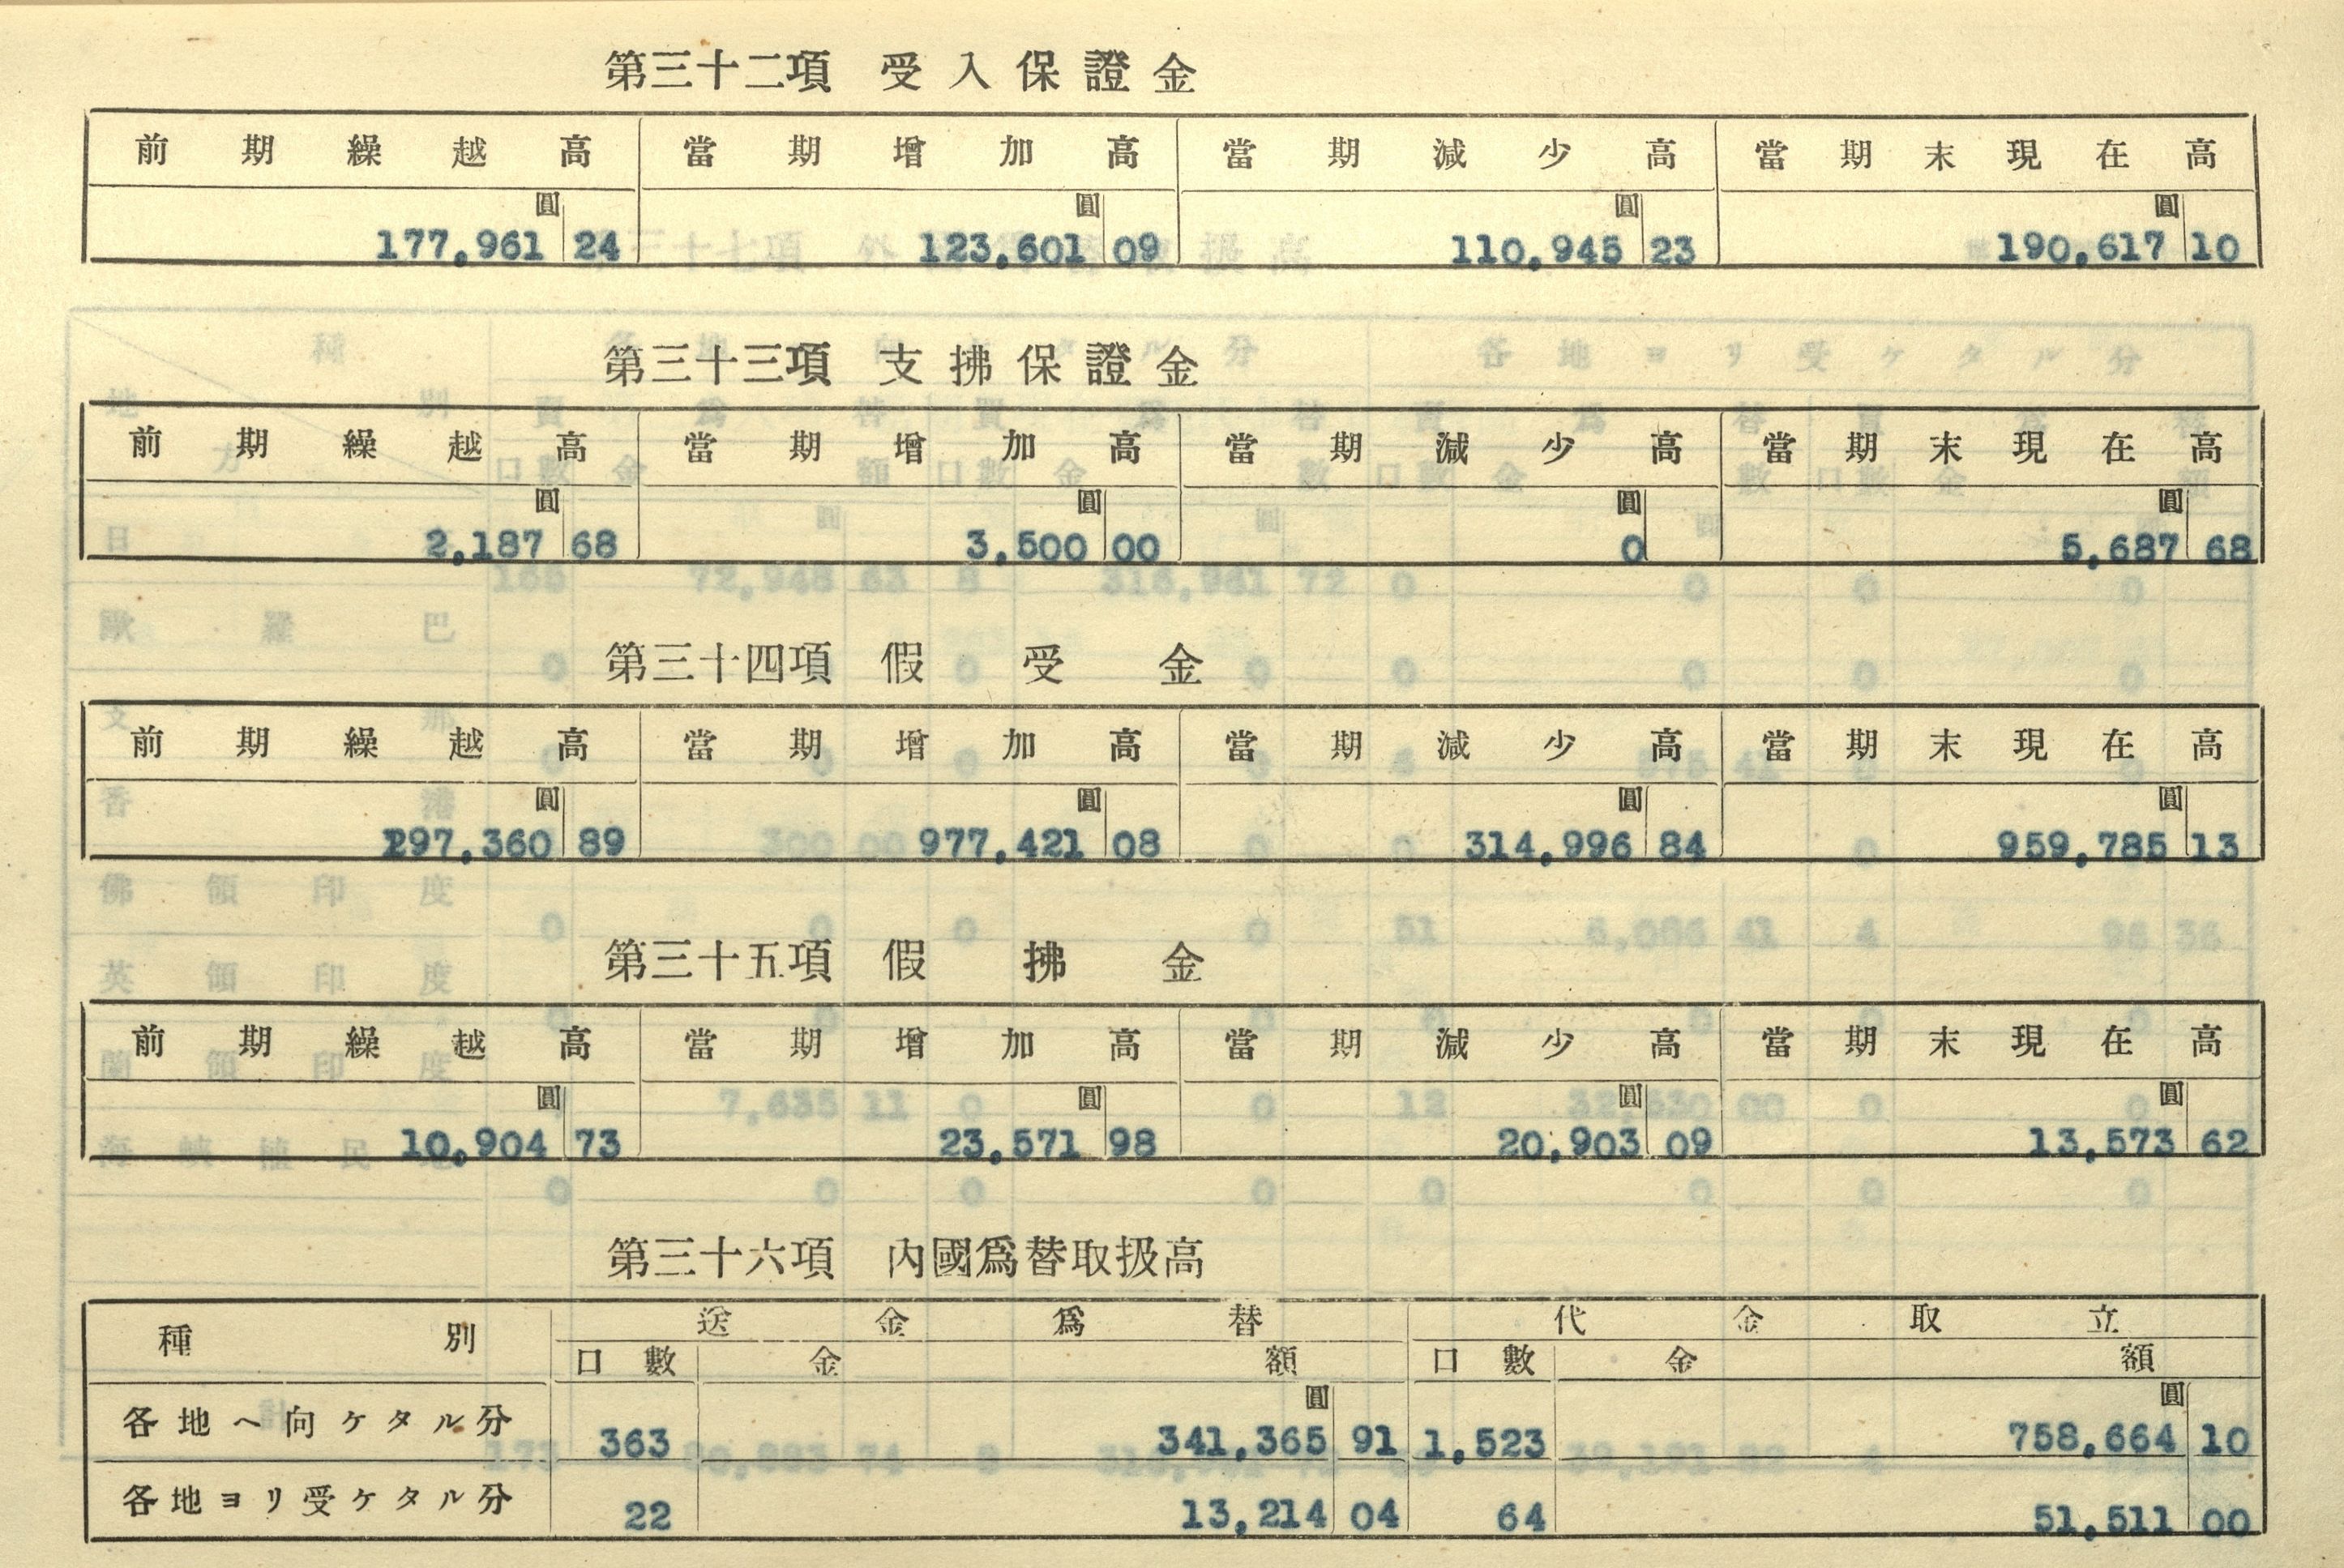 第三十二項 受入保證金
前期繰越高 當期增加高 當期減少高 當期末現在高
圓 圓 圓 圓
177,961 24 123,601 09 110,945 23 190,617 10
第三十三項 支拂保證金
前期繰越高 當期增加高 當期減少高 當期末現在高
圓 圓 圓 圓
2,187 68 3,500 00 0 5,687 68
第三十四項 假受金
前期繰越高 當期增加高 當期減少高 當期末現在高
圓 圓 圓 圓
297,360 89 977,421 08 314,996 84 959,785 13
第三十五項 假拂金
前期繰越高 當期增加高 當期減少高 當期末現在高
圓 圓 圓 圓
10,904 73 23,571 98 20,903 09 13,573 62
第三十六項 內國爲替取扱高
種別 送金爲替 代金取立
口數 金額 口數 金額
圓 圓
各地ヘ向ケタル分 363 341,365 91 1,523 758,664 10
各地ヨリ受ケタル分 22 13,214 04 64 51,511 00